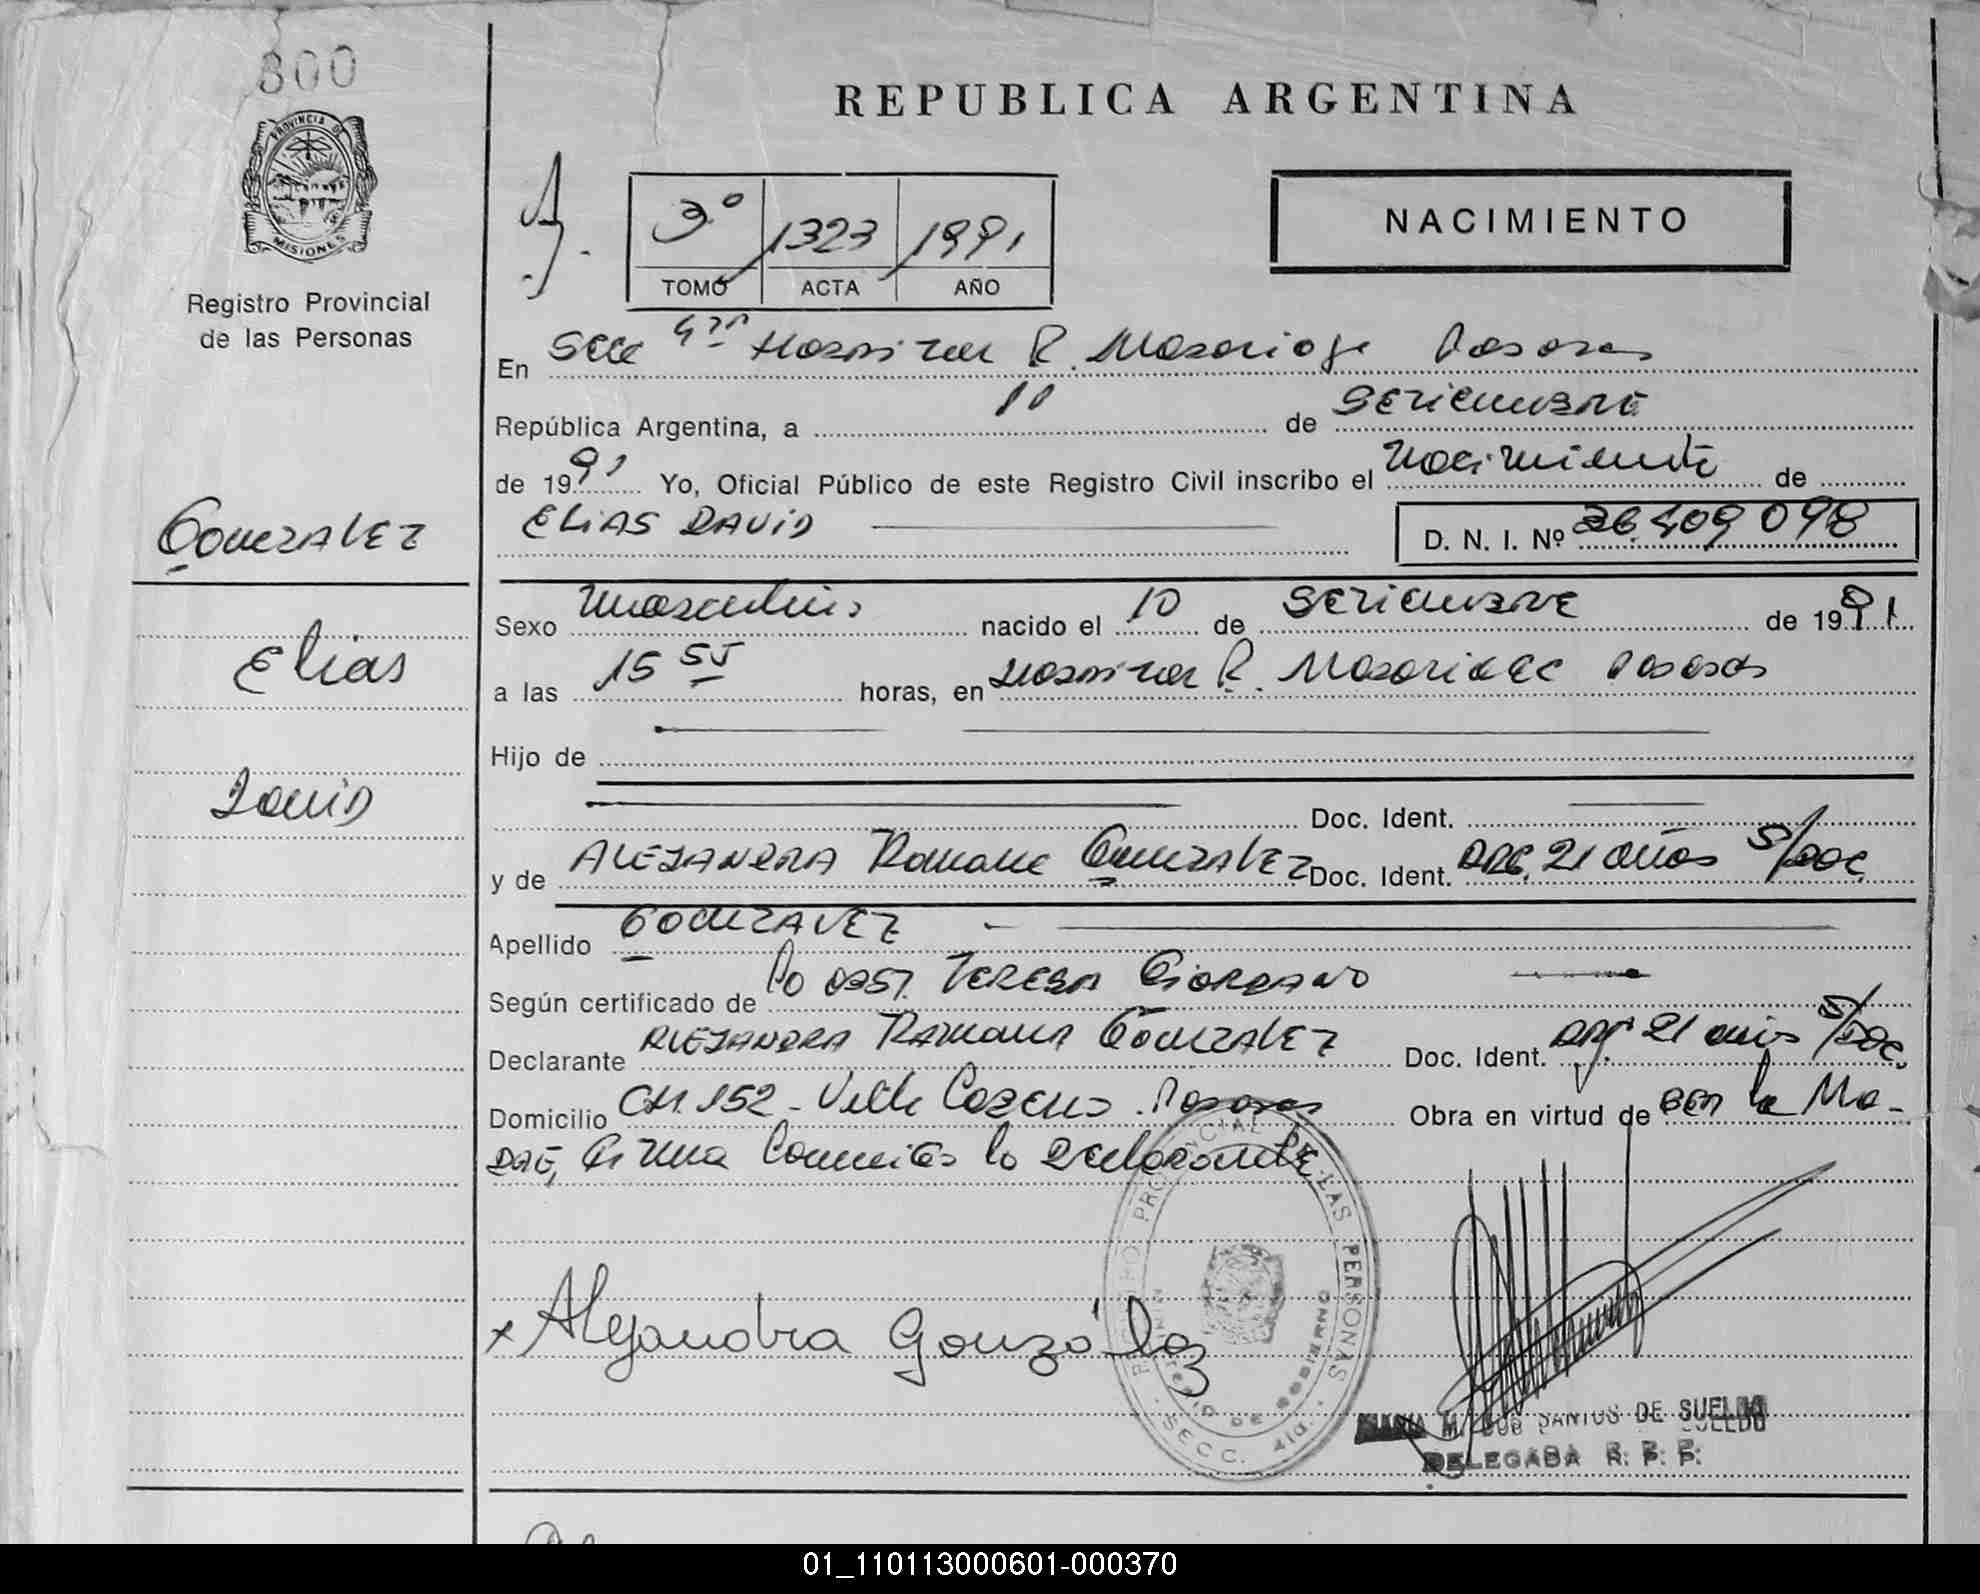 300
PROVINCIA DE
MISIONES
Registro Provincial
de las Personas
REPUBLICA ARGENTINA
3º 1323 1991
TOMO ACTA AÑO
NACIMIENTO
En Secc 4ta Hospital R. Madariaga Posadas
República Argentina, a 10 de SETIEMBRE
de 1991 Yo, Oficial Público de este Registro Civil inscribo el Nacimiento de
ELIAS DAVID
D. N. I. Nº 36.409 098
GONZALEZ
Elias
David
Sexo Masculino nacido el 10 de SETIEMBRE de 1991
a las 15 55 horas, en Hospital R. Madariaga Posadas
Hijo de
Doc. Ident.
y de ALEJANDRA Ramona GONZALEZ Doc. Ident. ARG. 21 años S/DOC.
Apellido GONZALEZ
Según certificado de TERESA GIORDANO
Declarante ALEJANDRA RAMONA GONZALEZ Doc. Ident. Arg. 21 años S/DOC.
Domicilio CH. 152 - Villa Posadas Obra en virtud de ser la Ma-
DRE, Firma la declarante
x Alejandra González
REGISTRO PROVINCIAL DE LAS PERSONAS
MINISTERIO DE GOBIERNO
SECC. 4ta.
MARIA M. DOS SANTOS DE SUELDO
DELEGADA R. P. P.
01_110113000601-000370